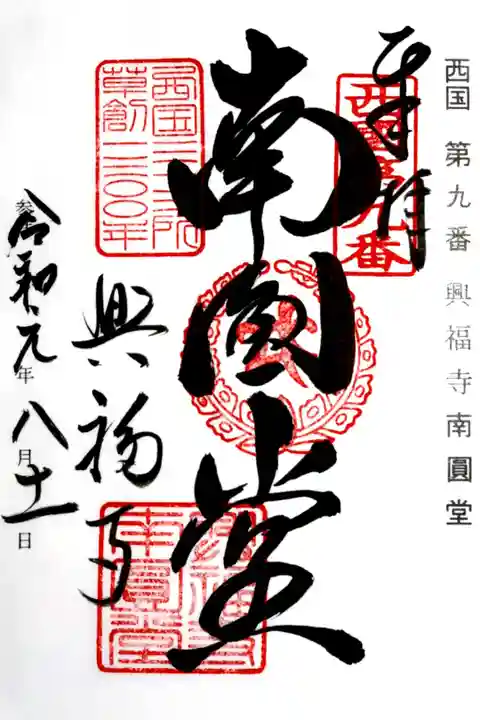 西国 第九番 興福寺南圓堂
奉拝
西國第九番
南圓堂
西国三十三所
草創一三〇〇年
興福寺
参 令和元年八月十一日